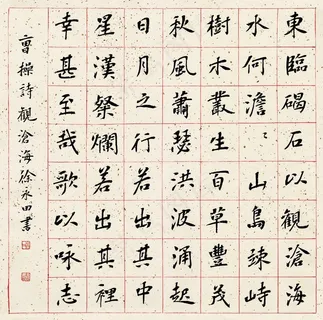 東臨碣石以觀滄海
水何澹〻山島竦峙
樹木叢生百草豐茂
秋風蕭瑟洪波涌起
日月之行若出其中
星漢粲爛若出其裡
幸甚至哉歌以咏志
曹操詩觀滄海徐永田書